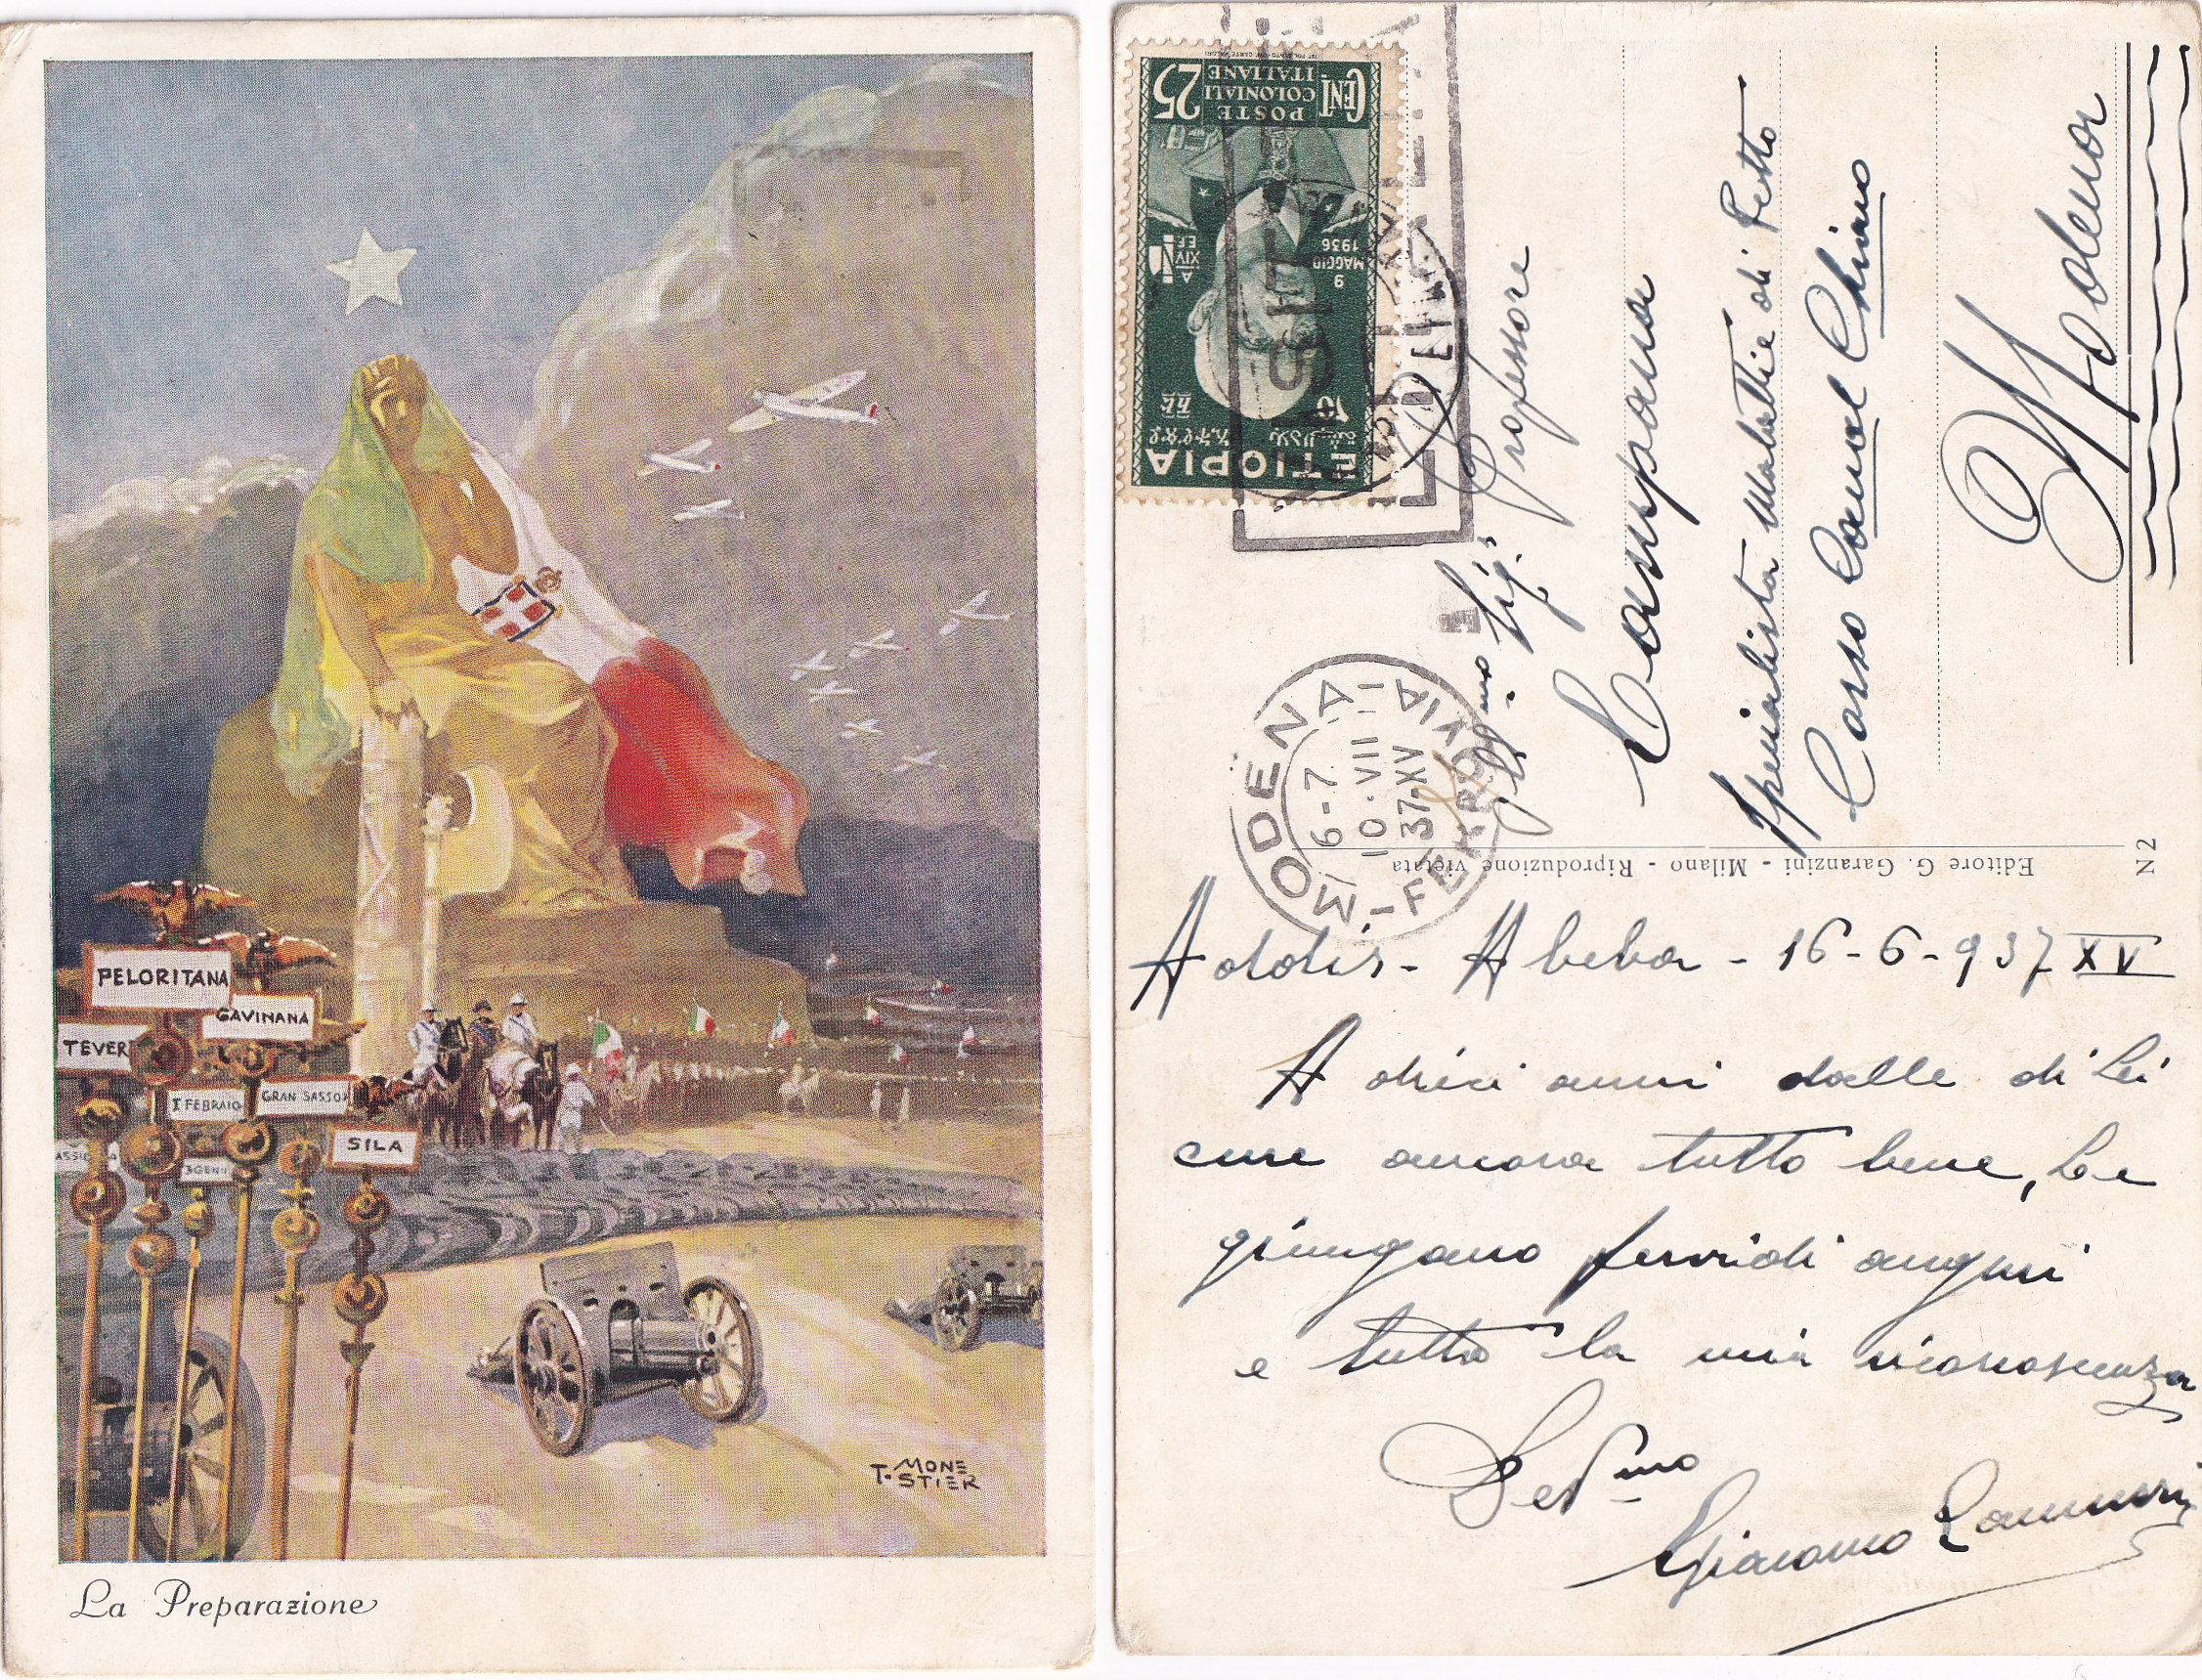 PELORITANA
GAVINANA
TEVER
I FEBRAIO
GRAN SASSO
SILA
3 GENN
T. MONE
STIER
La Preparazione
POSTE
COLONIALI
ITALIANE
CENT 25
9
MAGGIO
1936
A
XIV
E.F.
10
ETIOPIA
MODENA
6-7
10·VII
37·XV
FERROVIA
Ill.mo Sig. Professore
Campana
Specialista Malattie di Petto
Corso Canal Chiaro
Modena
Editore G. Garanzini - Milano - Riproduzione vietata
N 2
Addis-Abeba - 16-6-937 XV
A dieci anni dalle di Lei
cure ancora tutto bene, Le
giungano fervidi auguri
e tutta la mia riconoscenza
Dev.mo
Giacomo